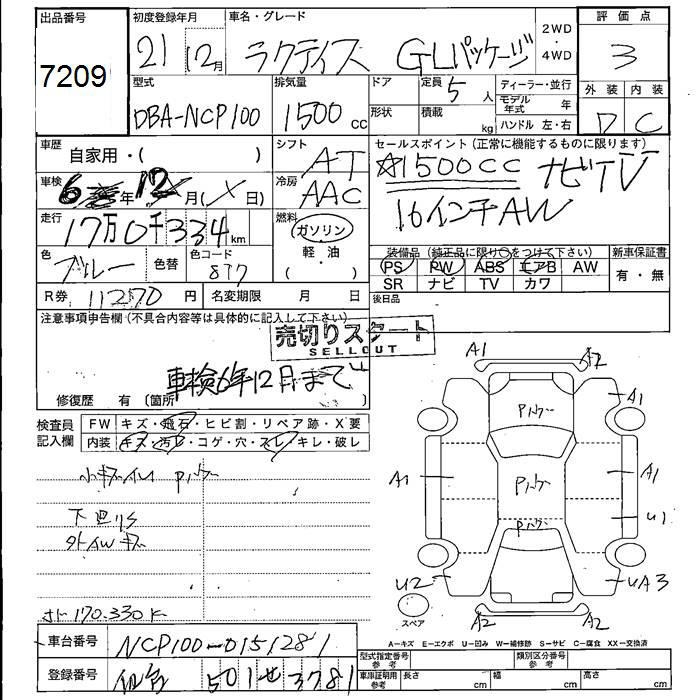 出品番号 初度登録年月 車名・グレード 2WD ・ 4WD 評価点
7209 21 12月 ラクティス GLパッケージ 3
型式 排気量 ドア 定員 5人 ディーラー・並行 外装 内装
DBA-NCP100 1500cc 形状 積載 kg モデル年式 年 D C
ハンドル 左・右
車歴 自家用・( ) シフト AT セールスポイント(正常に機能するものに限ります)
☆1500CC ナビTV
車検 6年12月(〆日) 冷房 AAC 16インチAW
走行 17万0千334km 燃料 ガソリン 軽・油 ( )
色 ブルー 色替 色コード 8T7
装備品(純正品に限り○をつけて下さい) 新車保証書
PS PW ABS エアB AW 有・無
SR ナビ TV カワ
R券 11270円 名変期限 月 日 後日品
注意事項申告欄(不具合内容等は具体的に記入して下さい)
売切りスタート
SELLOUT
車検6年12月まで
修復歴 有 〔箇所
検査員記入欄 FW キズ・飛石・ヒビ割・リペア跡・X要
内装 キズ・汚レ・コゲ・穴・スレ・キレ・破レ
A1 A2
A1
Pルーク
A1 Pルーク A1
Pルーク U1
下廻りS
外AWキズ
U2 UA3
スペア A2 A2
170.330K
A-キズ E-エクボ U-凹み W-補修跡 S-サビ C-腐食 XX-交換済
車台番号 NCP100-0151281
型式指定番号 参考 類別区分番号 参考
登録番号 仙台 501 せ 3781
車庫証明用 参考 長さ cm 幅 cm 高さ cm